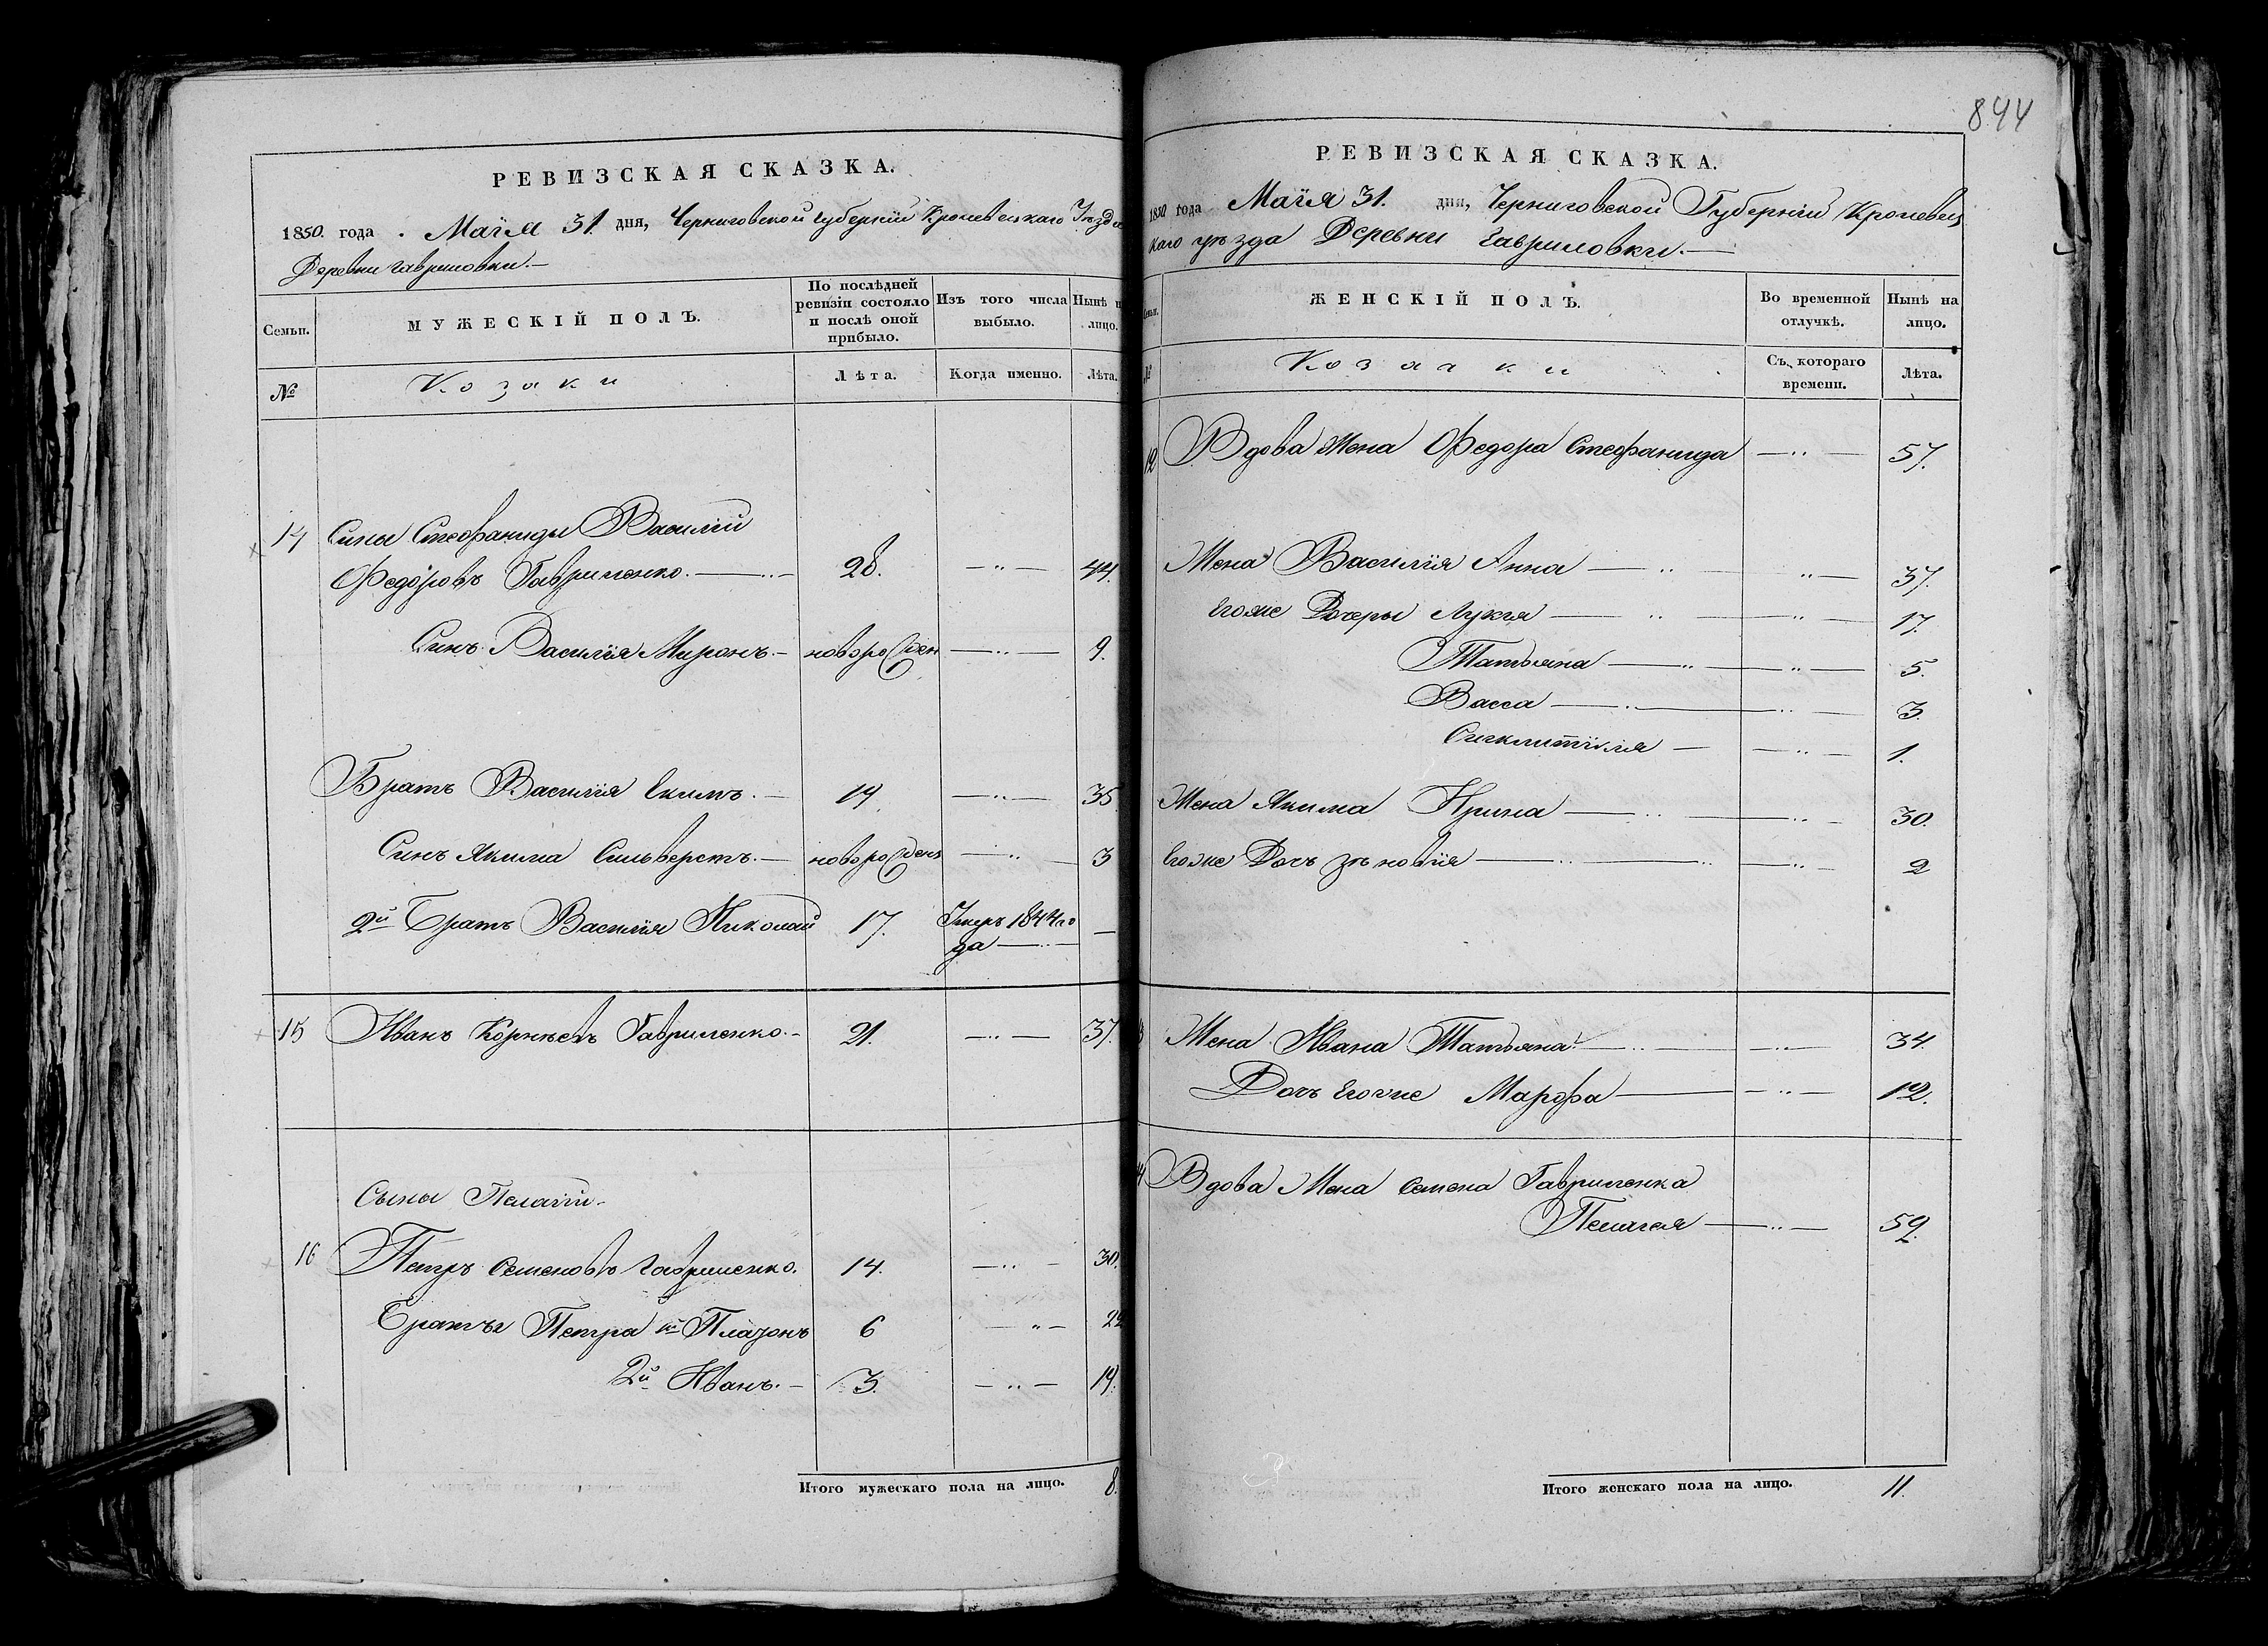 РЕВИЗСКАЯ СКАЗКА.
1850. года Маія 31. дня, Черниговской Губерніи Кролевецкаго Уѣзда
Деревни Гавриловки.
Семьи.
МУЖЕСКІЙ ПОЛЪ.
По послѣдней ревизіи состояло и послѣ оной прибыло.
Изъ того числа выбыло.
Нынѣ на лицо.
№
Козаки
Лѣта.
Когда именно.
Лѣта.
14 Сины Стефаниды Василій
Федоровъ Гавриленко. 28. 44.
Синъ Василія Миронъ. новорожден 9.
Братъ Василія Екимъ. 19. 35
Синъ Якима Сильверстъ. новорожден 3
2й Братъ Василія Николай 17. Умеръ 1844 го
да
15 Иванъ Корнѣевъ Гавриленко. 21. 37.
Сыны Пелагіи
16 Петръ Семеновъ Гавриленко. 14. 30.
Братья Петра 1й Платонъ 6 22
2й Иванъ. 3. 19.
Итого мужескаго пола на лицо. 8.
844
РЕВИЗСКАЯ СКАЗКА.
1850 года Маія 31. дня, Черниговской Губерніи Кролевец
каго уѣзда Деревни Гавриловки.
Семьи.
ЖЕНСКІЙ ПОЛЪ.
Во временной отлучкѣ.
Нынѣ на лицо.
№
Козачки
Съ котораго времени.
Лѣта.
Вдова Жена Федора Стефанида 57.
Жена Василія Анна 37.
Егоже Дочеры Лукія 17.
Татьяна 5.
Васса 3.
Сигклитикія 1.
Жена Якима Ирина 30.
Егоже Дочь Зѣновія 2
Жена Ивана Татьяна 34.
Дочь Егоже Марфа 12.
Вдова Жена Семена Гавриленка
Пелагея 59.
Итого женскаго пола на лицо. 11.